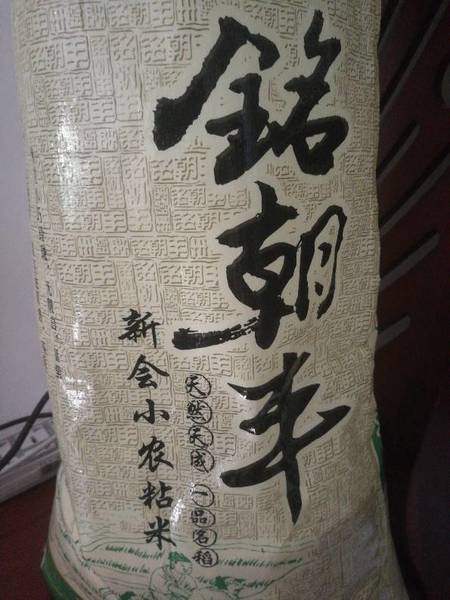 銘朝丰
天然天成 一品名稻
新会小农粘米